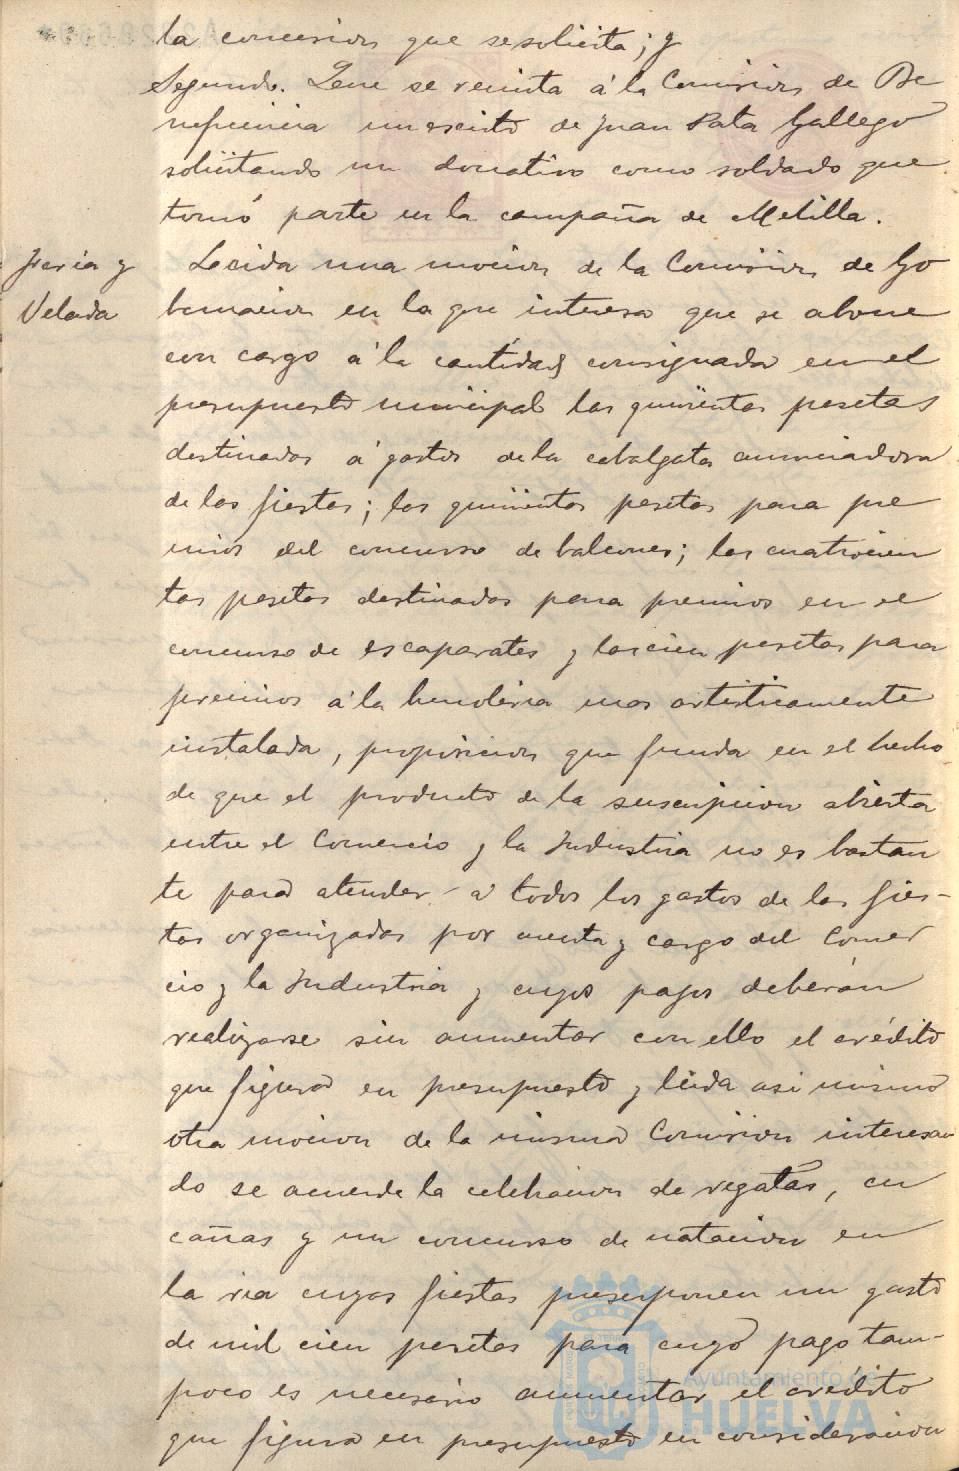 la concesion que se solicita; y
Segundo. Que se remita á la Comision de Be
neficencia un escrito de Juan Pata Gallego
solicitando un donativo como soldado que
tomó parte en la campaña de Melilla.
Feria y
Velada
Leida una mocion de la Comision de Go
bernacion en la que interesa que se abone
con cargo á la cantidad consignada en el
presupuesto municipal las quinientas pesetas
destinadas á gastos de la cabalgata anunciadora
de las fiestas; las quinientas pesetas para pre
mios del concurso de balcones; las cuatrocien
tas pesetas destinadas para premios en el
concurso de escaparates y las cien pesetas para
premios á la mas artisticamente
instalada, proposicion que funda en el hecho
de que el producto de la suscripcion abierta
entre el Comercio y la Industria no es bastan
te para atender á todos los gastos de las fies-
tas organizadas por cuenta y cargo del Comer
cio y la Industria y cuyos pagos deberán
realizarse sin aumentar con ello el crédito
que figura en presupuesto y leida asi mismo
otra mocion de la misma Comision interesan
do se acuerde la celebracion de regatas, cu
cañas y un concurso de natacion en
la ria cuyas fiestas presuponen un gasto
de mil cien pesetas para cuyo pago tam-
poco es necesario aumentar el crédito
que figura en presupuesto en consideracion
Ayuntamiento de
HUELVA